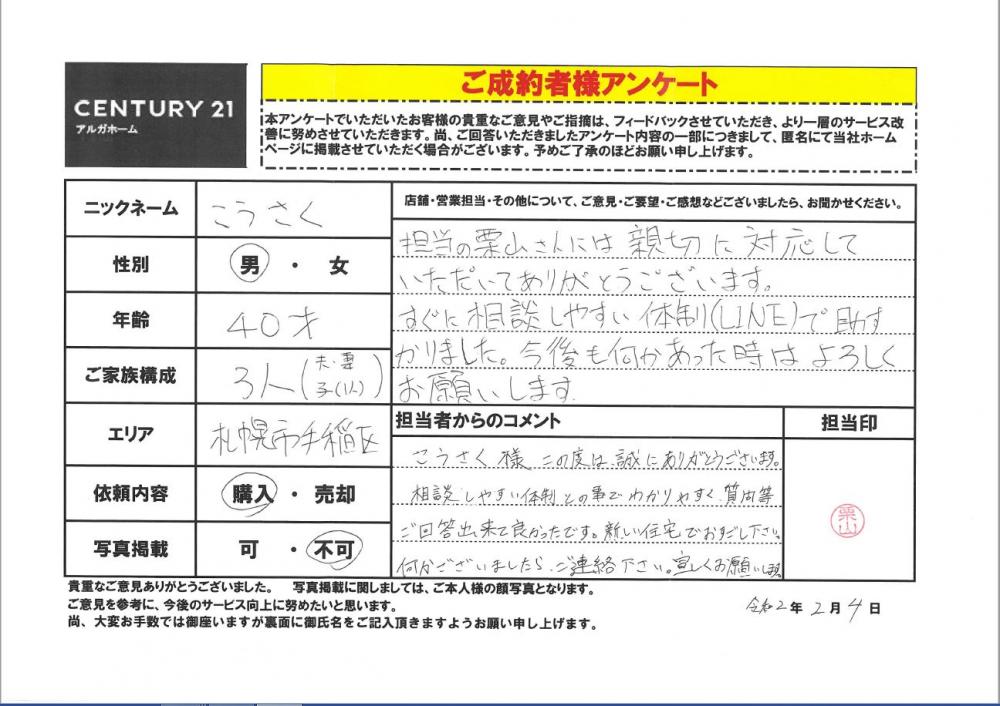 CENTURY 21
アルガホーム
ご成約者様アンケート
本アンケートでいただいたお客様の貴重なご意見やご指摘は、フィードバックさせていただき、より一層のサービス改
善に努めさせていただきます。尚、ご回答いただきましたアンケート内容の一部につきまして、匿名にて当社ホーム
ページに掲載させていただく場合がございます。予めご了承のほどお願い申し上げます。
ニックネーム
こうさく
性別
男 ・ 女
年齢
40才
ご家族構成
3人(夫・妻
子(1人))
エリア
札幌市手稲区
依頼内容
購入 ・ 売却
写真掲載
可 ・ 不可
店舗・営業担当・その他について、ご意見・ご要望・ご感想などございましたら、お聞かせください。
担当の栗山さんには親切に対応して
いただいてありがとうございます。
すぐに相談しやすい体制(LINE)で助す
かりました。今後も何かあった時はよろしく
お願いします。
担当者からのコメント
こうさく様 この度は誠にありがとうございます。
相談しやすい体制との事でわかりやすく質問等
ご回答出来て良かったです。新しい住宅でおすごし下さい。
何かございましたら、ご連絡下さい。宜しくお願いします。
担当印
栗山
貴重なご意見ありがとうございました。 写真掲載に関しましては、ご本人様の顔写真となります。
ご意見を参考に、今後のサービス向上に努めたいと思います。
尚、大変お手数では御座いますが裏面に御氏名をご記入頂きますようお願い申し上げます。
令和2年 2月 4日